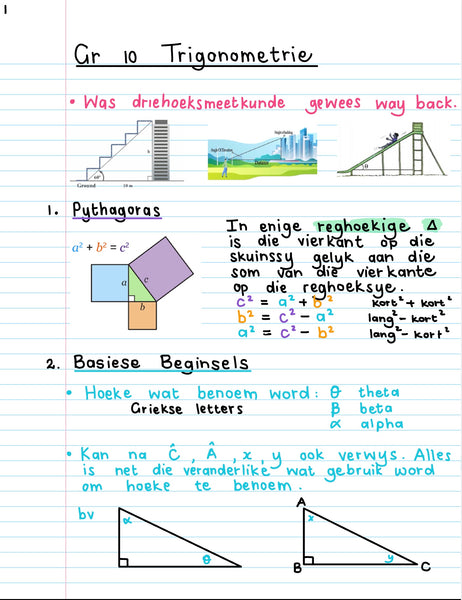 1
Gr 10 Trigonometrie
• Was driehoeksmeetkunde gewees way back.
Ground
10 m
Distance
θ
1. Pythagoras
a² + b² = c²
a
c
b
In enige reghoekige Δ
is die vierkant op die
skuinssy gelyk aan die
som van die vierkante
op die reghoeksye.
c² = a² + b² kort² + kort²
b² = c² - a² lang² - kort²
a² = c² - b² lang² - kort²
2. Basiese Beginsels
• Hoeke wat benoem word: θ theta
Griekse letters β beta
α alpha
• Kan na Ĉ, Â, x, y ook verwys. Alles
is net die veranderlike wat gebruik word
om hoeke te benoem.
bv
α
θ
A
x
B
y
C